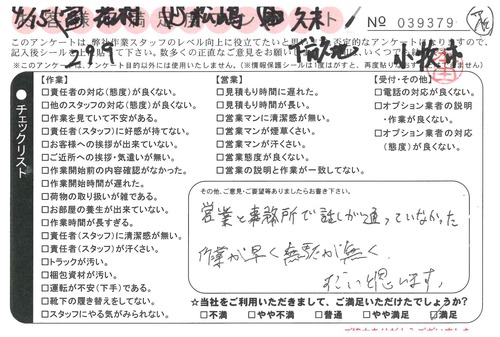 No 039379
このアンケートは、弊社作業スタッフのレベル向上に役立てたいと
記入後シールを
※このアンケートは、アンケート目的以外には使用いたしません。
チェックリスト
【作業】
□責任者の対応(態度)が良くない。
□他のスタッフの対応(態度)が良くない。
□作業を見ていて不安がある。
□責任者(スタッフ)に好感が持てない。
□お客様への挨拶が出来ていない。
□ご近所への挨拶・気遣いが無い。
□作業開始前の内容確認がなかった。
□作業開始時間が遅れた。
□荷物の取り扱いが雑である。
□お部屋の養生が出来ていない。
□作業時間が長すぎる。
□責任者(スタッフ)に清潔感が無い。
□責任者(スタッフ)が汗くさい。
□トラックが汚い。
□梱包資材が汚い。
□運転が不安(下手)である。
□靴下の履き替えをしてない。
□スタッフにやる気がみられない。
【営業】
□見積もり時間に遅れた。
□見積もり時間が長い。
□営業マンに清潔感が無い。
□営業マンが煙草くさい。
□営業マンが汗くさい。
□営業態度が良くない。
□営業の説明と作業が一致してない。
【受付・その他】
□電話の対応が良くない。
□オプション業者の説明
・作業が良くない。
□オプション業者の対応
(態度)が良くない。
その他、ご意見・ご要望等ありましたらお書き下さい。
営業と事務所で話しが通っていなかった
作業が早く無駄が無く
すごいと思います。
☆当社をご利用いただきまして、ご満足いただけたでしょうか?
□不満 □やや不満 □普通 □やや満足 ☑満足